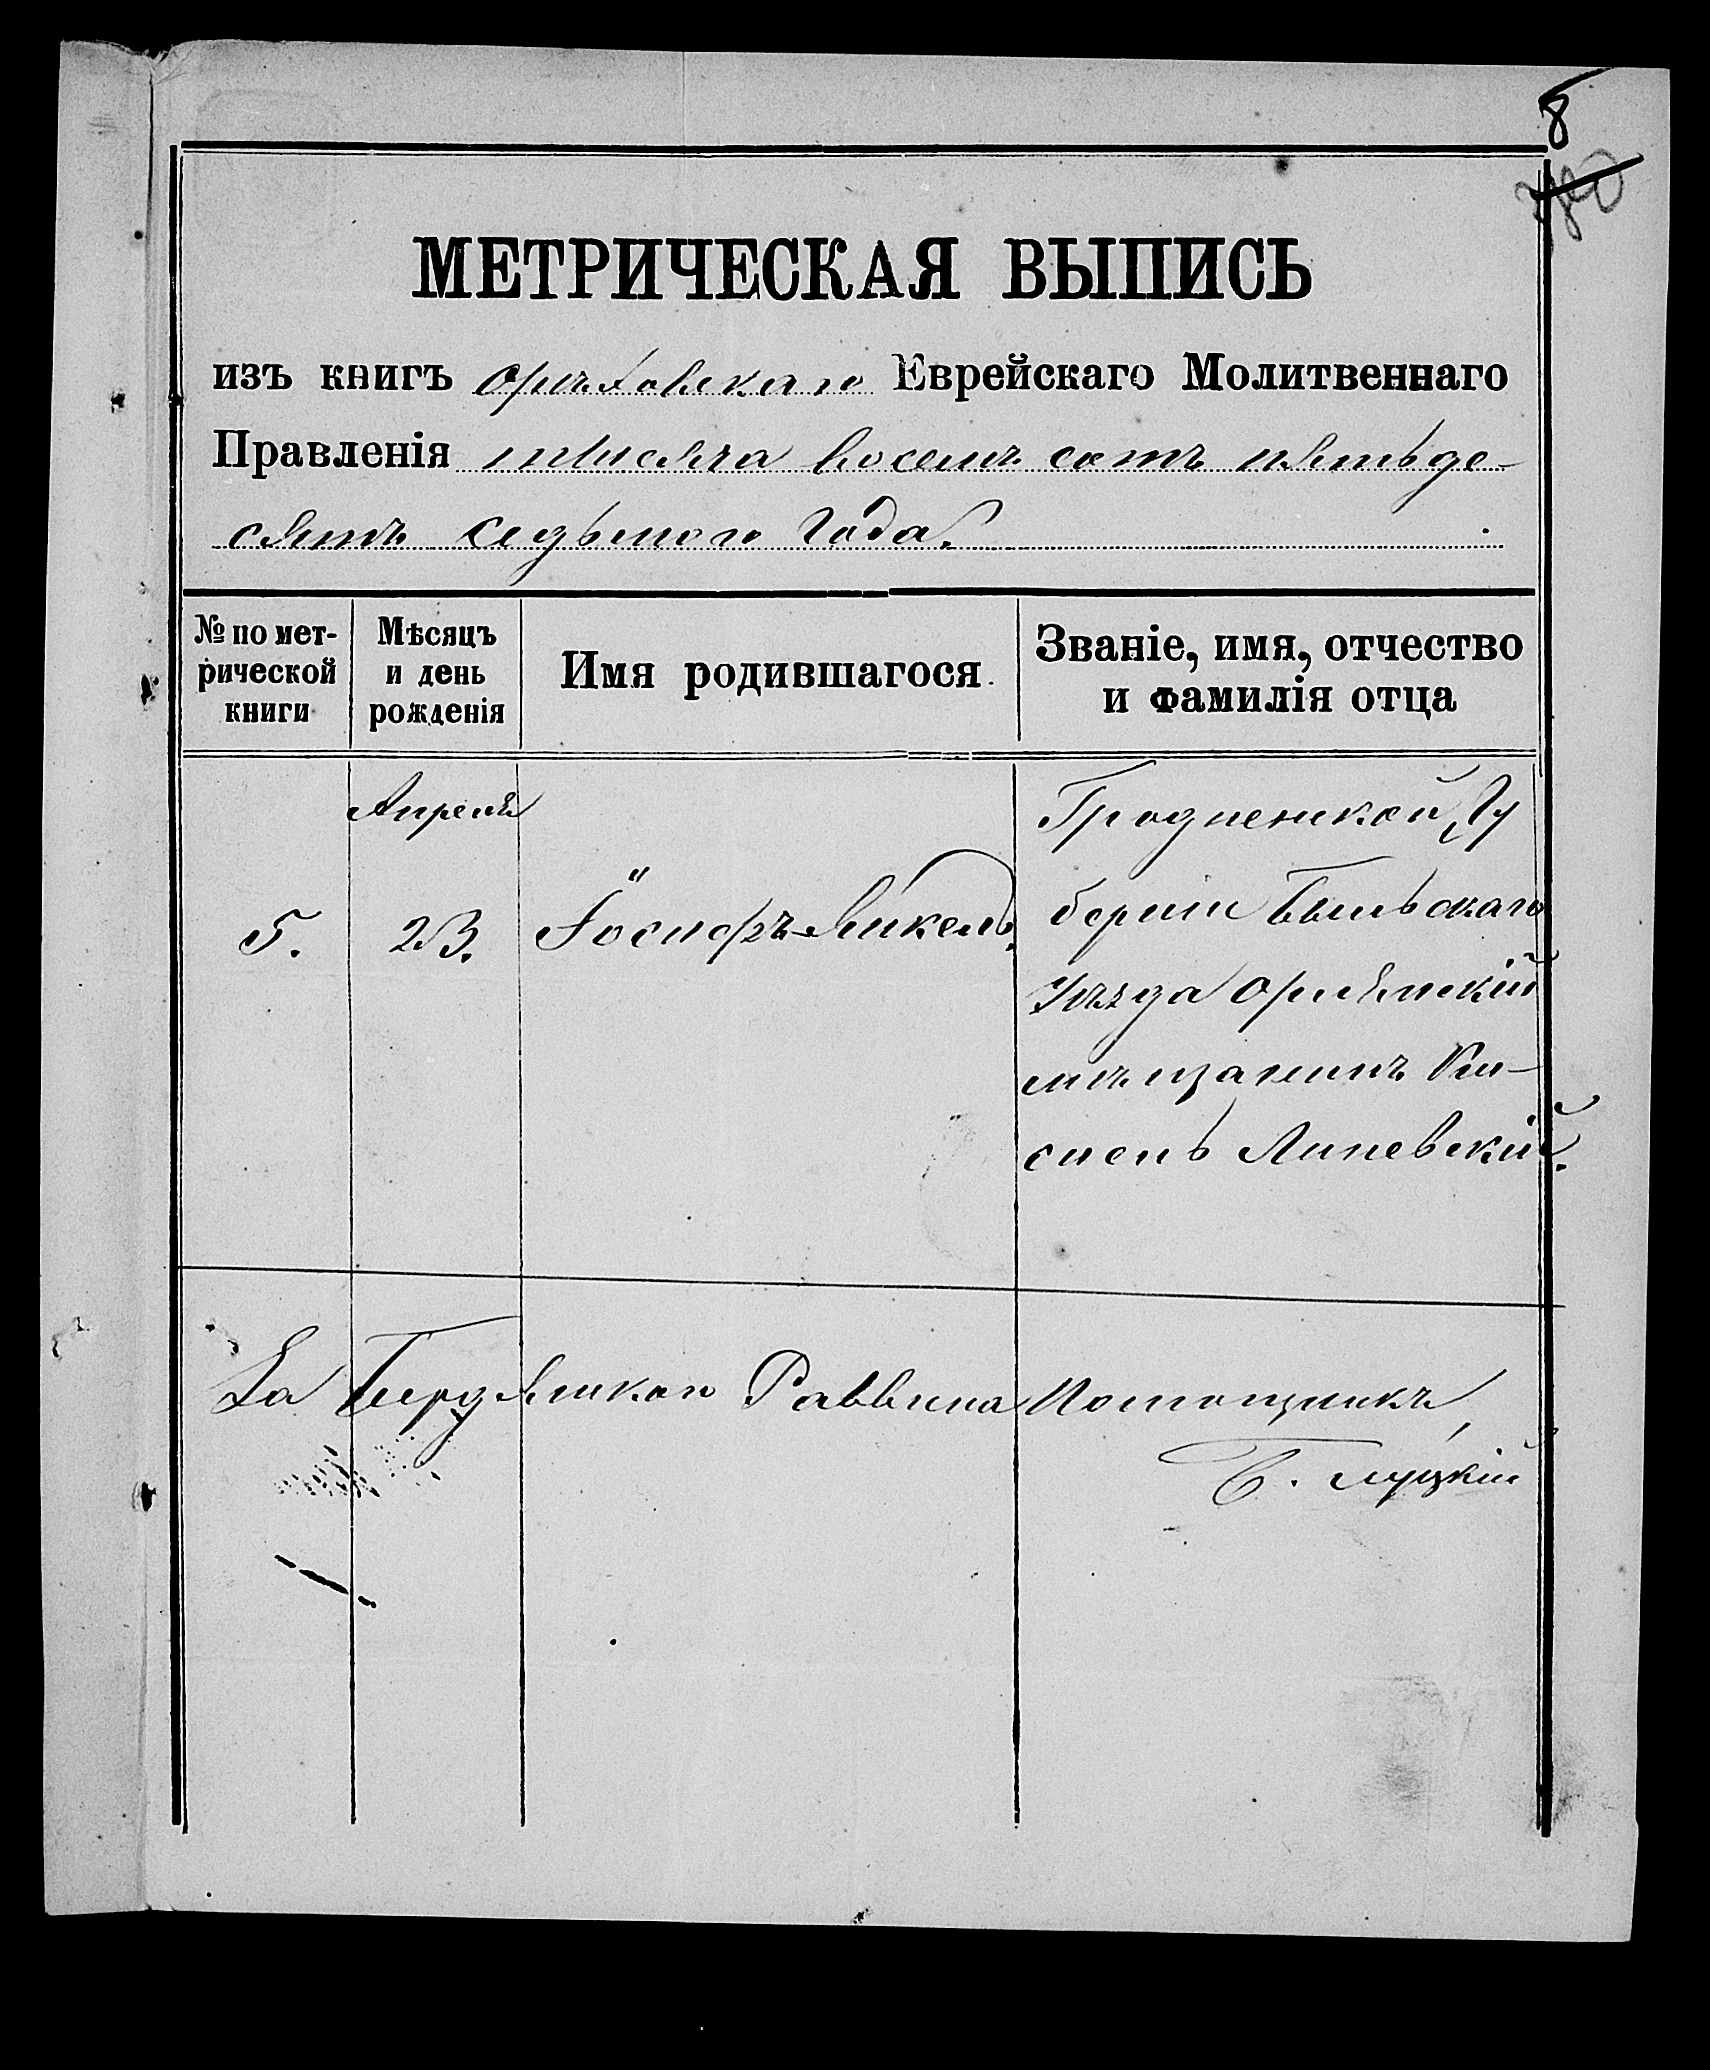 8
МЕТРИЧЕСКАЯ ВЫПИСЬ
изъ книгъ Орѣховскаго Еврейскаго Молитвеннаго
Правленія тысяча восемь сотъ пятьде-
сятъ седьмого года.
№ по мет-
рической
книги
Мѣсяцъ
и день
рожденія
Имя родившагося.
Званіе, имя, отчество
и фамилія отца
Апрель
5.
23.
Іосифъ-Янкель.
Гродненской Гу
берніи Бѣльскаго
уѣзда Орлянскій
мѣщанинъ Ки-
сіель Липевскій.
За Бердянскаго Раввина Помощникъ
Б. Луцкій